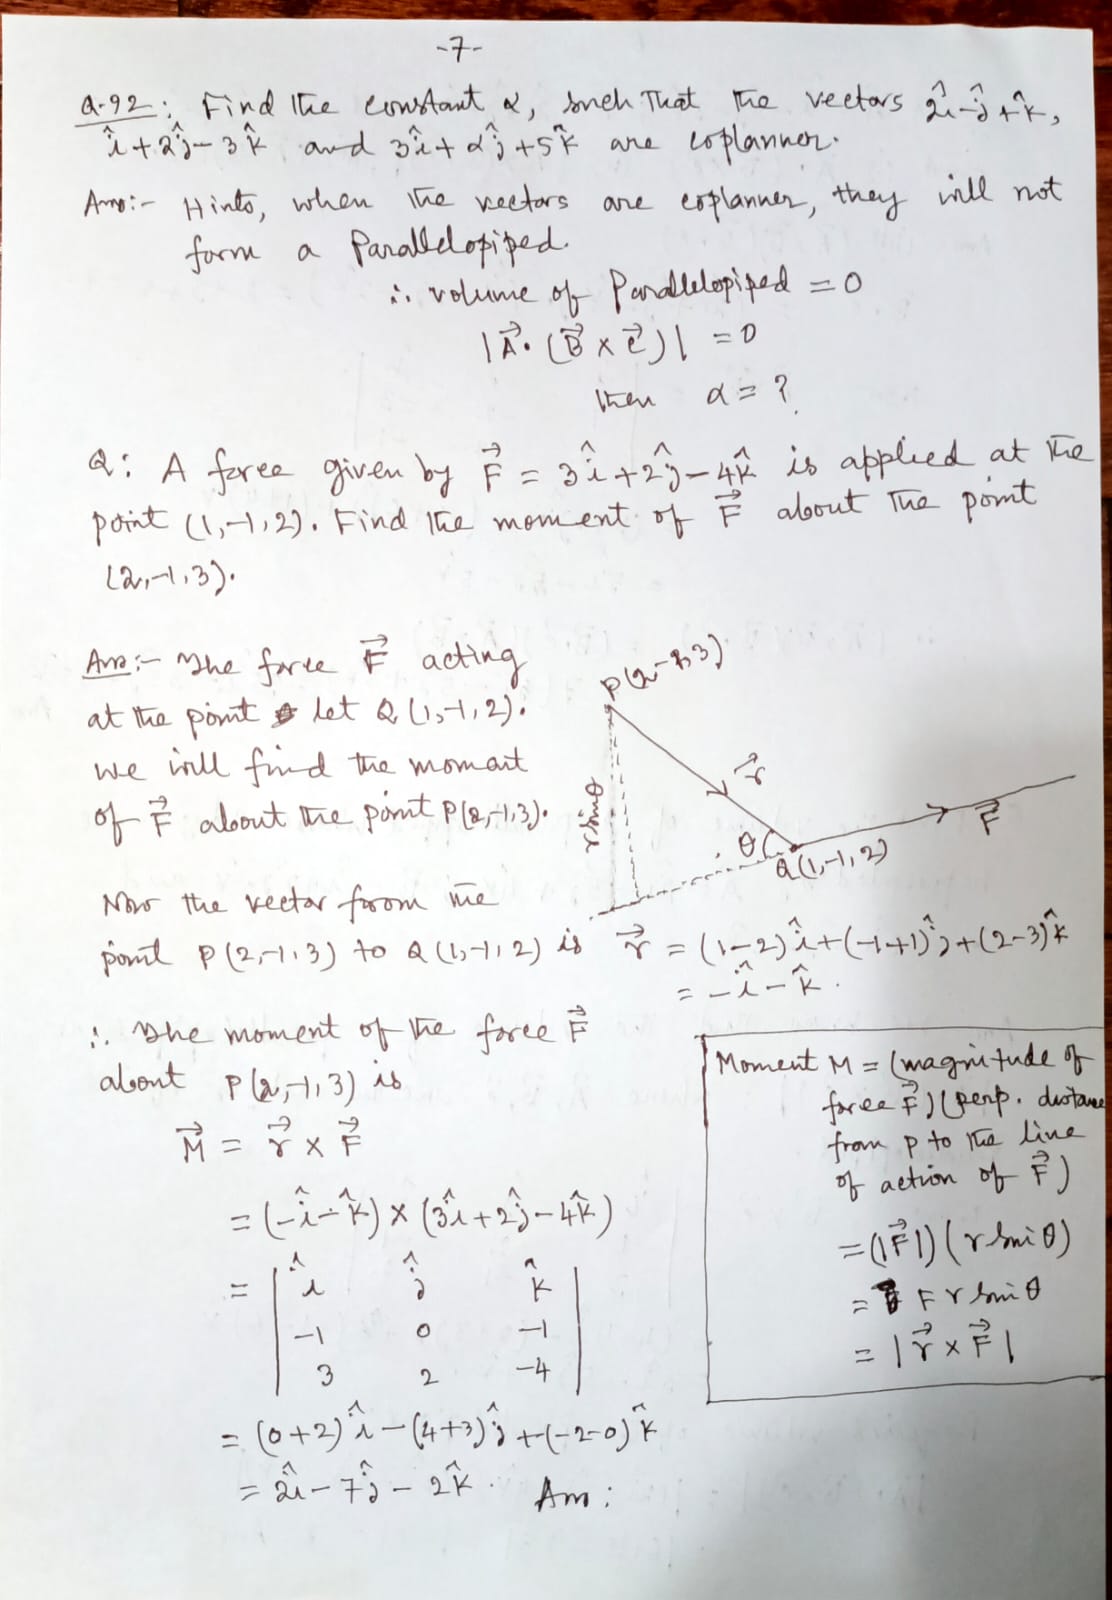 -7-
Q-92: Find the constant α, such that the vectors 2î-ĵ+k̂,
î+2ĵ-3k̂ and 3î+αĵ+5k̂ are coplanner.
Ans:- Hints, when the vectors are coplanner, they will not
form a Parallelopiped.
∴ volume of Parallelopiped = 0
|A⃗·(B⃗×C⃗)| = 0
then α = ?
Q: A force given by F⃗ = 3î+2ĵ-4k̂ is applied at the
point (1,-1,2). Find the moment of F⃗ about the point
(2,-1,3).
Ans:- The force F⃗ acting
at the point let Q(1,-1,2).
we will find the moment
of F⃗ about the point P(2,-1,3).
P(2-1,3)
r⃗
r sinθ
θ
F⃗
Q(1,-1,2)
Now the vector from the
point P(2,-1,3) to Q(1,-1,2) is r⃗ = (1-2)î+(-1+1)ĵ+(2-3)k̂
= -î-k̂.
∴ The moment of the force F⃗
about P(2,-1,3) is
M⃗ = r⃗ × F⃗
= (-î-k̂) × (3î+2ĵ-4k̂)
= | î ĵ k̂ |
| -1 0 -1 |
| 3 2 -4 |
= (0+2)î-(4+3)ĵ+(-2-0)k̂
= 2î-7ĵ-2k̂. Ans:
Moment M = (magnitude of
force F⃗)(perp. distance
from p to the line
of action of F⃗)
=(|F⃗|)(r sin θ)
= F r sin θ
= |r⃗ × F⃗|